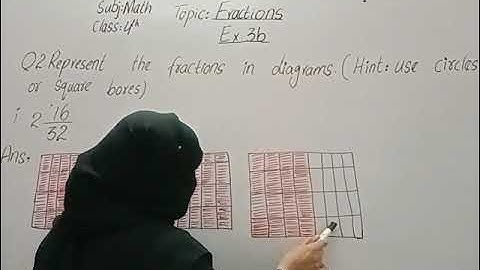 Subj:Math
Topic: Fractions
Class:4th
Ex 3b
Q2 Represent the fractions in diagrams. (Hint: use circles
or square boxes)
i 2 16/32
Ans: